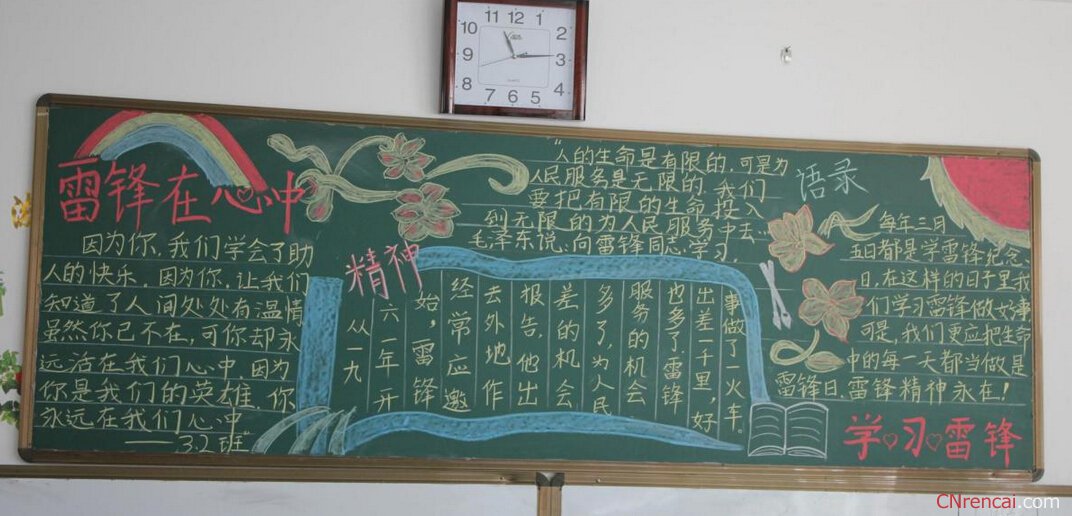 11 12 1
10 2
9 3
8 4
7 6 5
雷锋在心中
因为你，我们学会了助
人的快乐，因为你，让我们
知道了人间处处有温情
虽然你已不在，可你却永
远活在我们心中，因为
你是我们的英雄，你
永远在我们心中
——3.2班
精神
从一九
六一年开
始，雷锋
经常应邀
去外地作
报告，他出
差的机会
多了，为人民
服务的机会
也多了，雷锋
出差一千里，好
事做了一火车。
语录
"人的生命是有限的，可是为
人民服务是无限的，我们
要把有限的生命投入
到无限的为人民服务中去"
毛泽东说：向雷锋同志学习，
每年三月
五日都是学雷锋纪念
日，在这样的日子里我
们学习雷锋做好事
可是，我们更应把生命
中的每一天都当做是
雷锋日，雷锋精神永在！
学习雷锋
CNrencai.com